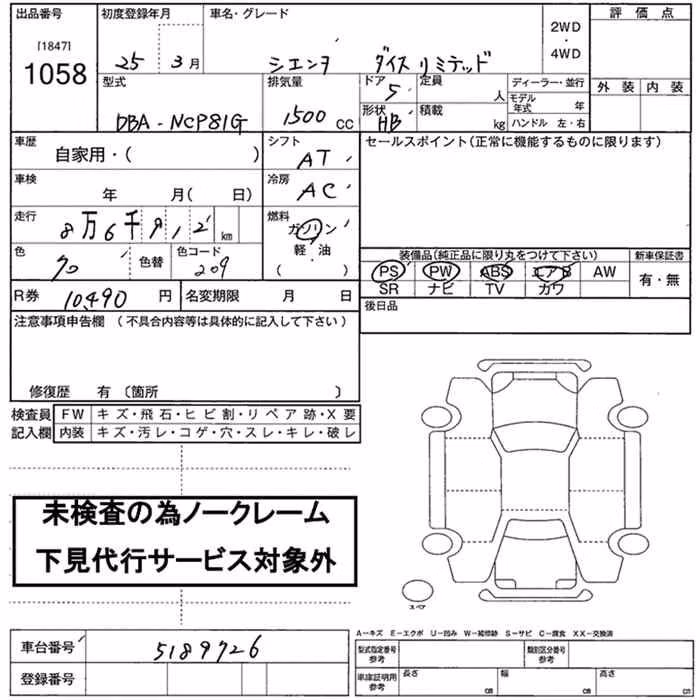 出品番号 初度登録年月 車名・グレード 2WD・4WD 評価点
[1847]
1058
25 3月 シエンタ ダイス リミテッド
外装 内装
型式 排気量 ドア 定員 ディーラー・並行
DBA-NCP81G 1500 CC 5 人 モデル年式 年
形状 積載 ハンドル 左・右
HB kg
車歴 シフト セールスポイント(正常に機能するものに限ります)
自家用・( ) AT
車検 冷房
年 月( 日) AC
走行 燃料
8万6千912 km ガソリン
軽・油
( )
色 色替 色コード 装備品(純品に限り丸をつけて下さい) 新車保証書
クロ 209 PS PW ABS エアB AW 有・無
SR ナビ TV カワ
R券 10490 円 名変期限 月 日 後日品
注意事項申告欄 (不具合内容等は具体的に記入して下さい)
修復歴 有 〔箇所 〕
検査員 FW キズ・飛石・ヒビ割・リペア跡・X要
記入欄 内装 キズ・汚レ・コゲ・穴・スレ・キレ・破レ
未検査の為ノークレーム
下見代行サービス対象外
スペア
A−キズ E−エクボ U−凹み W−補修跡 S−サビ C−腐食 XX−交換済
車台番号 5189726 型式指定番号 参考 類別区分番号 参考
登録番号 車庫証明用 参考 長さ cm 幅 cm 高さ cm